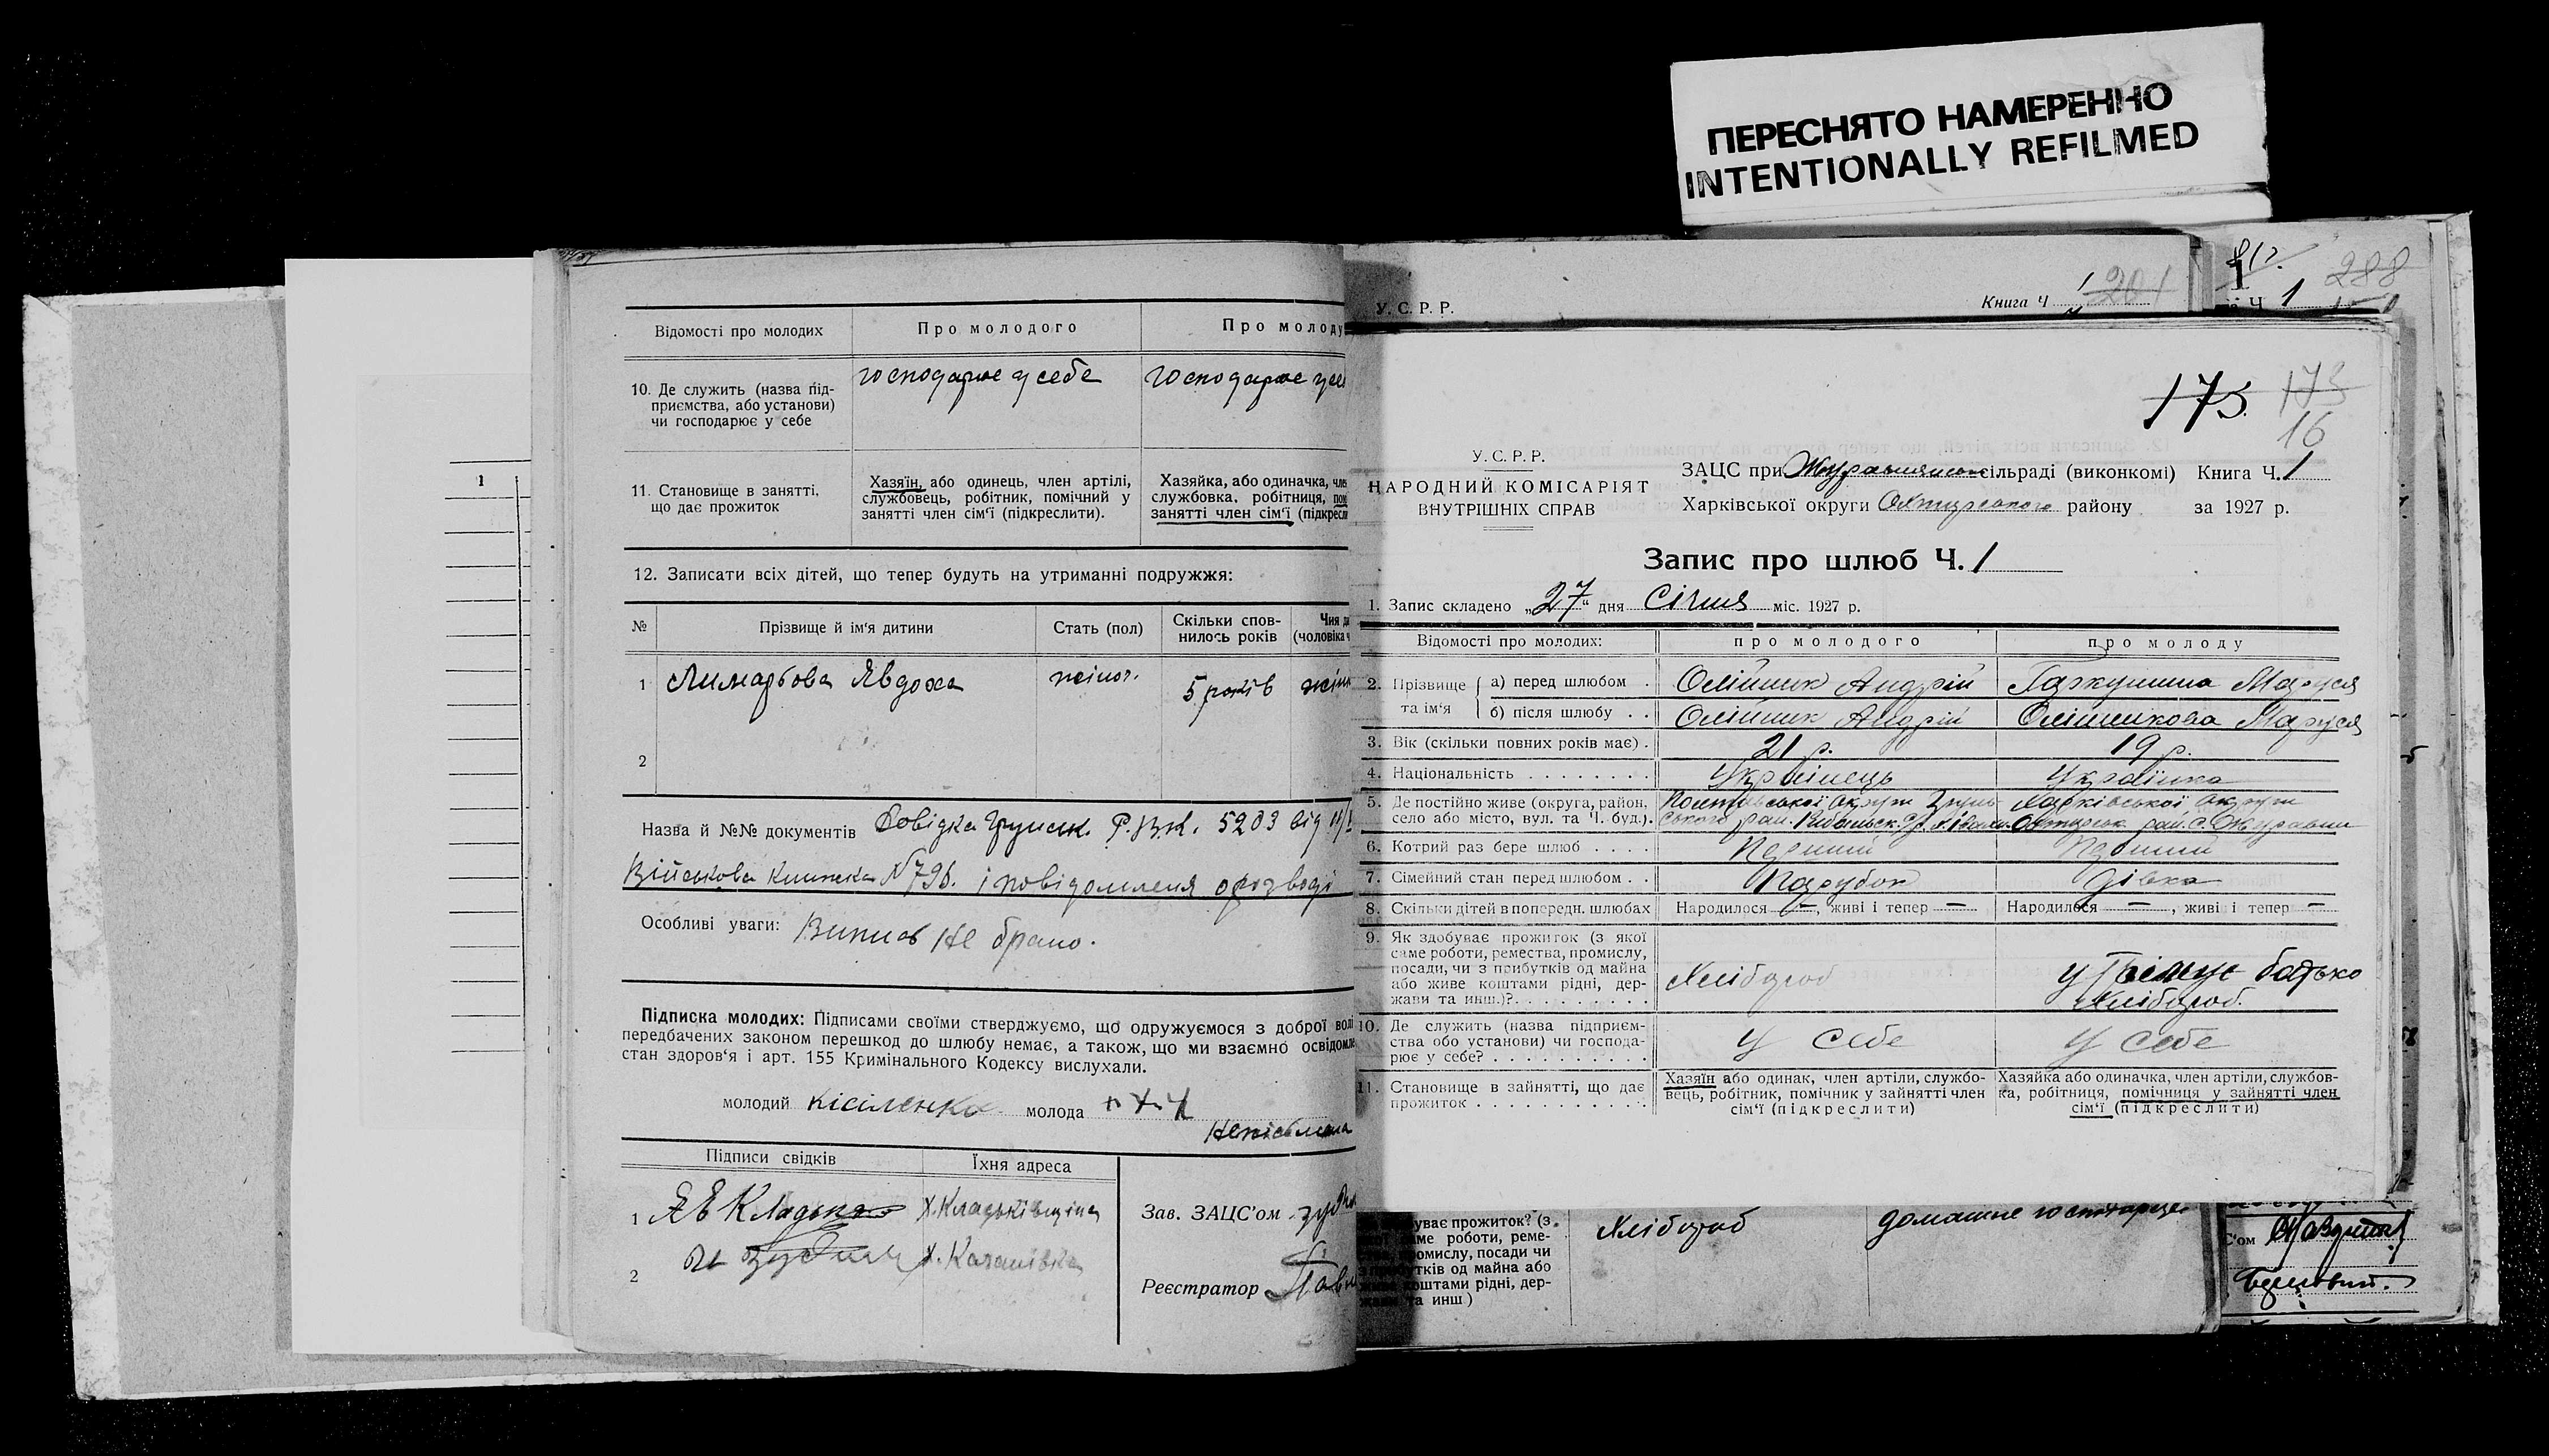 ПЕРЕСНЯТО НАМЕРЕННО
INTENTIONALLY REFILMED
Відомості про молодих
Про молодого
Про молоду
10. Де служить (назва під-
приємства, або установи)
чи господарює у себе
господарює у себе
господарює у
11. Становище в занятті,
що дає прожиток
Хазяїн, або одинець, член артілі,
службовець, робітник, помічний у
занятті член сім'ї (підкреслити).
Хазяйка, або одиначка,
службовка, робітниця,
занятті член сім'ї
12. Записати всіх дітей, що тепер будуть на утриманні подружжя:
№
Прізвище й ім'я дитини
Стать (пол)
Скільки спов-
нилось років
Чия
(чоловіка
1
Лимарьова Явдоха
жіноч.
5 років
2
Назва й №№ документів Довідка Грунськ. Р.В.К. 5203 від
Військова книжка №796. і повідомленя о розводі
Особливі уваги: Випис не брано.
Підписка молодих: Підписами своїми стверджуємо, що одружуємося з доброї волі
передбачених законом перешкод до шлюбу немає, а також, що ми взаємно
стан здоров'я і арт. 155 Кримінального Кодексу вислухали.
молодий Кісіленко молода
Підписи свідків
Їхня адреса
1
Х. Кладьківщина
2
Х. Качанівка
Зав. ЗАЦС'ом
Реєстратор
У.С.Р.Р.
Книга Ч 1
201
288
Ч 1
175.
175
16
У.С.Р.Р.
НАРОДНИЙ КОМІСАРІЯТ
ВНУТРІШНІХ СПРАВ
ЗАЦС при Журавлянськ сільраді (виконкомі) Книга Ч. 1
Харківської округи Охтирського району за 1927 р.
Запис про шлюб Ч. 1
1. Запис складено „27" дня Січня міс. 1927 р.
Відомості про молодих:
про молодого
про молоду
2. Прізвище та ім'я
а) перед шлюбом
Олійник Андрій
Гаркушина Маруся
б) після шлюбу
Олійник Андрій
Олійникова Маруся
3. Вік (скільки повних років має)
21 р.
19 р.
4. Національність
Українець
Українка
5. Де постійно живе (округа, район,
село або місто, вул. та Ч. буд.).
Полтавської округи Грунь-
ського рай.
Харківської округи
Охтирськ. рай. с. Журавни
6. Котрий раз бере шлюб
Перший
Перший
7. Сімейний стан перед шлюбом
Парубок
дівка
8. Скільки дітей в попередн. шлюбах
Народилося —, живі і тепер —
Народилося —, живі і тепер —
9. Як здобуває прожиток (з якої
саме роботи, ремества, промислу,
посади, чи з прибутків од майна
або живе коштами рідні, дер-
жави та инш.)?
Хлібороб
батько
Хлібороб.
10. Де служить (назва підприєм-
ства обо установи) чи господа-
рює у себе?
У себе
У себе
11. Становище в зайнятті, що дає
прожиток
Хазяїн або одинак, член артіли, службо-
вець, робітник, помічник у зайнятті член
сім'ї (підкреслити)
Хазяйка або одиначка, член артіли, службов-
ка, робітниця, помічниця у зайнятті член
сім'ї (підкреслити)
уває прожиток? (з
ме роботи, реме-
омислу, посади чи
тків од майна або
оштами рідні, дер-
та инш)
Хлібороб
домашнє
С'ом